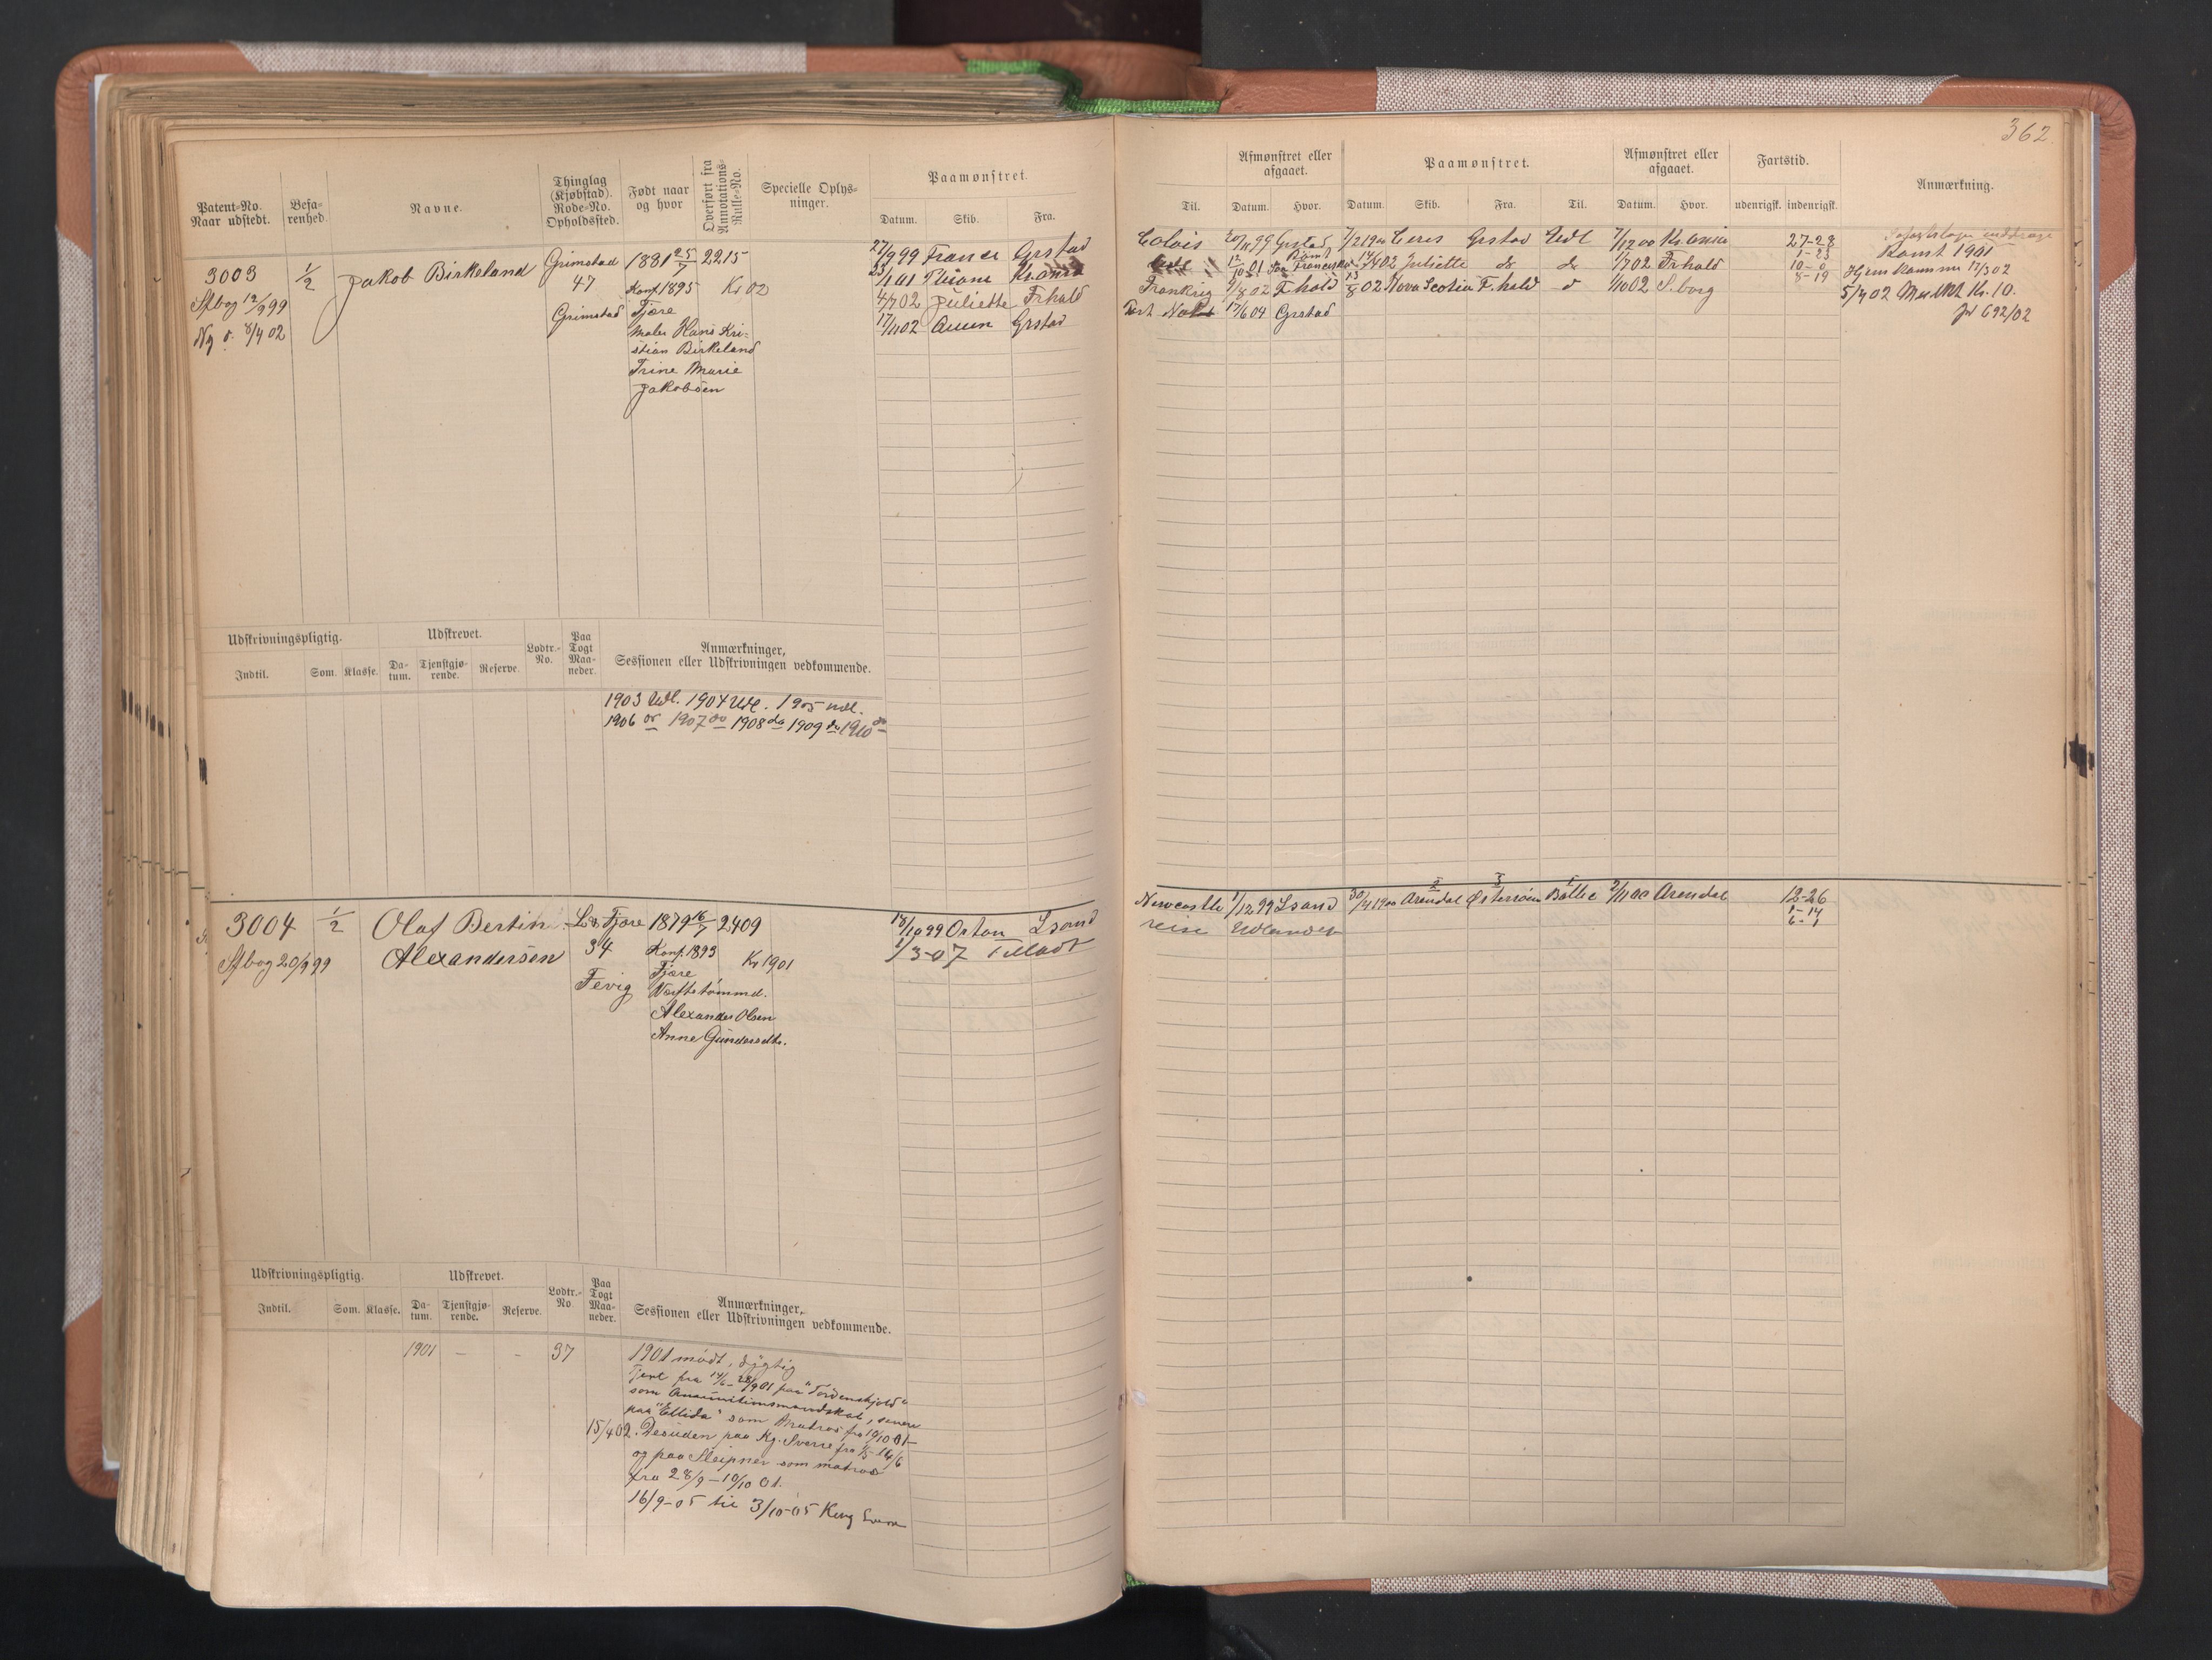 362
Patent-No. Naar udstedt.
Befa-renhed.
Navne.
Thinglag (Kjøbstad). Rode-No. Opholdssted.
Født naar og hvor
Overført fra Annotations-Rulle-No.
Specielle Oplys-ninger.
Paamønstret.
Datum. Skib. Fra.
Til.
Afmønstret eller afgaaet.
Datum. Hvor.
Paamønstret.
Datum. Skib. Fra. Til.
Afmønstret eller afgaaet.
Datum. Hvor.
Fartstid.
udenrigsk. indenrigsk.
Anmærkning.
3003 1/2 Jakob Birkeland Grimstad 1881 25/7 2215
Sfbog 12/9 99 47 Konf. 1895 Kr 02
Ny d. 8/4 02 Grimstad Fjære
Maler Hans Kri-
stian Birkeland
Trine Marie
Jakobsen
27/9 99 France Grstad
4/7 02 Juliette Frhald
17/11 02 Grstad
Grstad 7/2 1900 Ceres Grstad Udl 7/12 00 Kr.ania 27-28
12/10 01 San Francisko 02 Juliette do do 1/7 02 Frhald
Frankrig 9/8 02 F.hald 13/8 02 Nova Scotia F.hald d 1/10 02 S.borg
17/6 04 Grstad
1-23
10-0
8-19
Romt 1901
Hjem 17/3 02
5/4 02 Kr. 10.
Jr 692/02
Udskrivningspligtig.
Indtil. Som. Klasse.
Udskrevet.
Da-tum. Tjenstgjø-rende. Reserve.
Lodtr.-No.
Paa Togt Maa-neder.
Anmærkninger, Sessionen eller Udskrivningen vedkommende.
1903 Udl. 1904 Udl. 1905 udl.
1906 do 1907 do 1908 do 1909 do 1910 do
3004 1/2 Olaf Bertin L&Fjære 1879 16/7 2409
Sfbog 20/9 99 Alexandersen 34 Konf. 1893 Kr 1901
Fevig Fjære
Værftstømmd.
Alexander Olsen
Anne Gundersdtr.
18/10 99 Orton Lsand
1/3-07 Tilladt
Newcastle 1/12 99 Lsand 30/4 1900 Arendal Østersøen Baltic 2/11 00 Arendal 12-26
reise Udlandet
1-14
6-1
Udskrivningspligtig.
Indtil. Som. Klasse.
Udskrevet.
Da-tum. Tjenstgjø-rende. Reserve.
Lodtr.-No.
Paa Togt Maa-neder.
Anmærkninger, Sessionen eller Udskrivningen vedkommende.
1901 - - 37
1901 mødt, dygtig
Tjent fra 14/6-28/9 01 paa "Tordenskjold"
som Ammunitionsmandskab, senere
paa "Ellida" som Matros fra 10/10 01-
15/4 02. Desuden paa Kg. Sverre fra 1/5-14/6
og paa Sleipner som matros
fra 28/9-10/10 01.
16/9-05 til 3/10-05 Kong Sverre